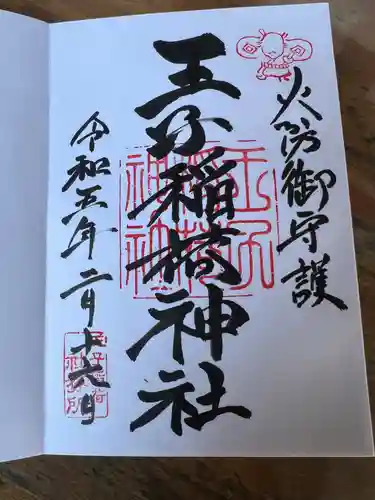 火防御守護
王子稲荷神社
令和五年二月十六日
王子
稲荷
神社
王子稲荷
社務所